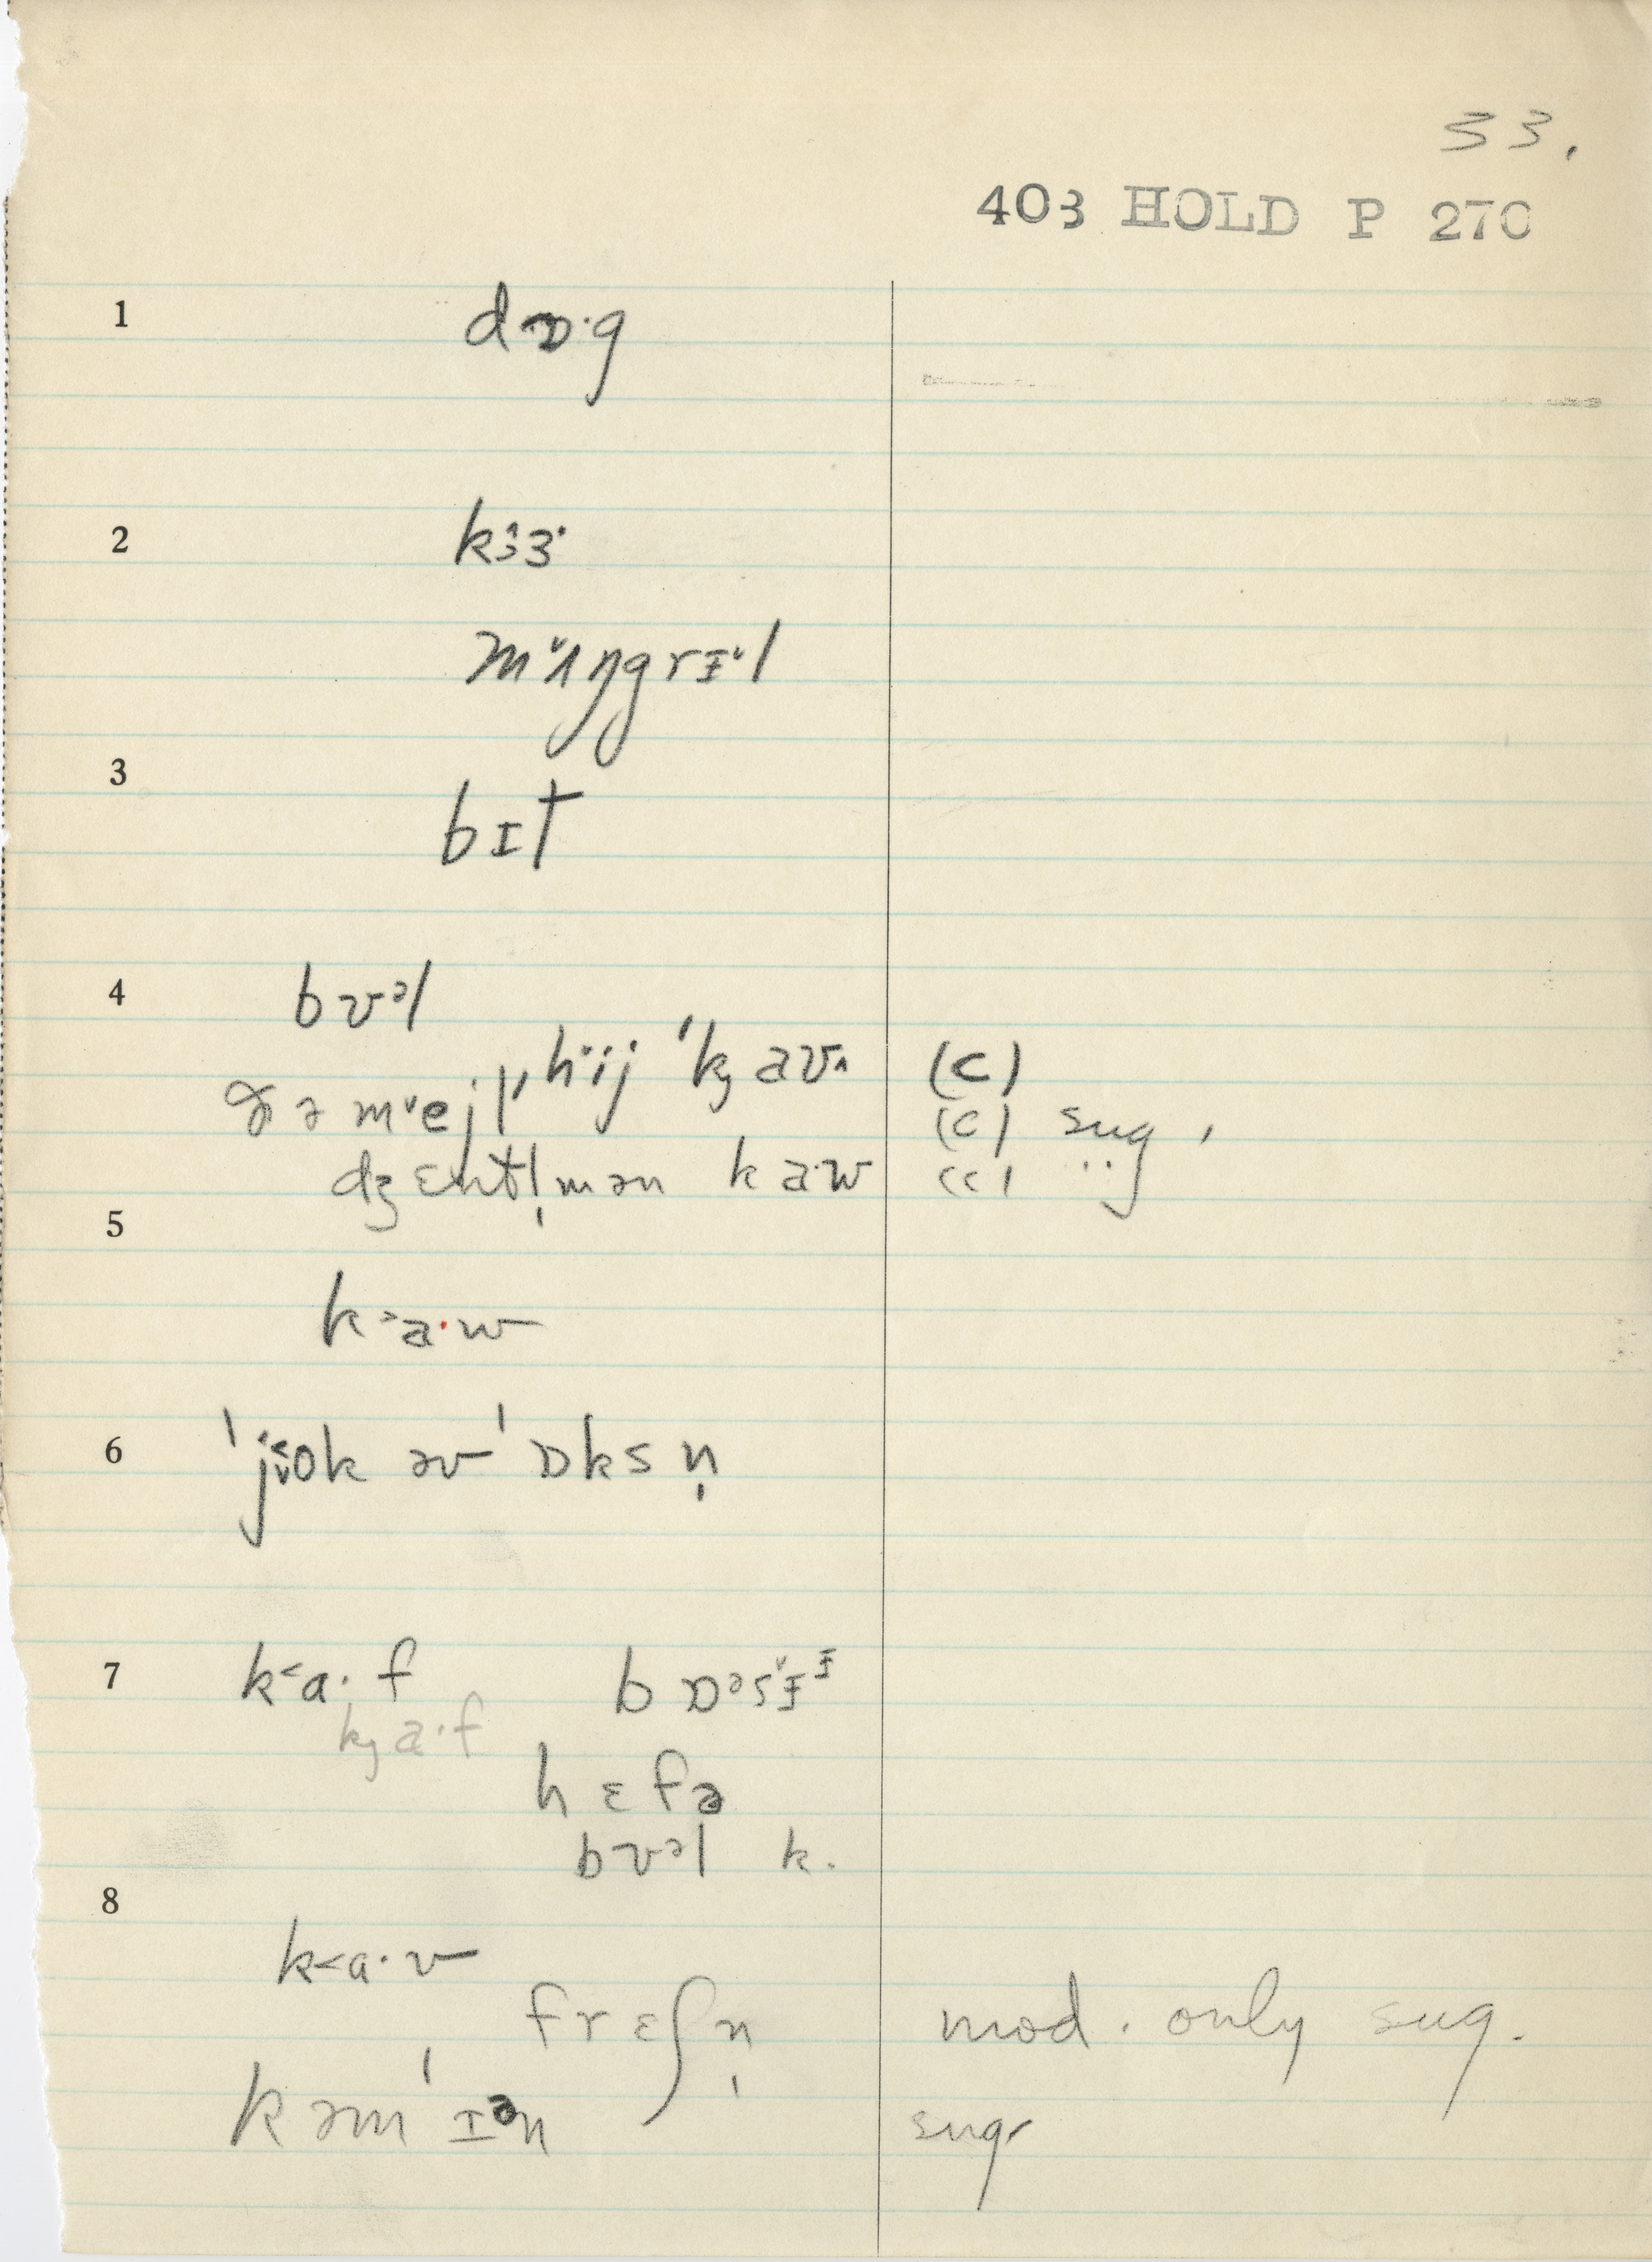 33.
403 HOLD P 270
1 dɒ·g
2 kɜ˄ɜ·
m˅ʌŋgrɪ˅l
3 bɪt
4 bʊᵊl
ðə m˅ejl ˈh˅ij ˈk̡aʊ˄ (c)
(c) sug.
dʒɛntl̩mən ka·w (c) "
5
k˃a·w
6 ˈjo˂˅k əv ˈɒksn̩
7 k˂a·f bɒᵊsɪ˅ᶦ
k̡a·f
hɛfə
bʊᵊl k.
8
k˂a·v
frɛʃn̩ mod. only sug.
kəmˈɪᵊn sug.